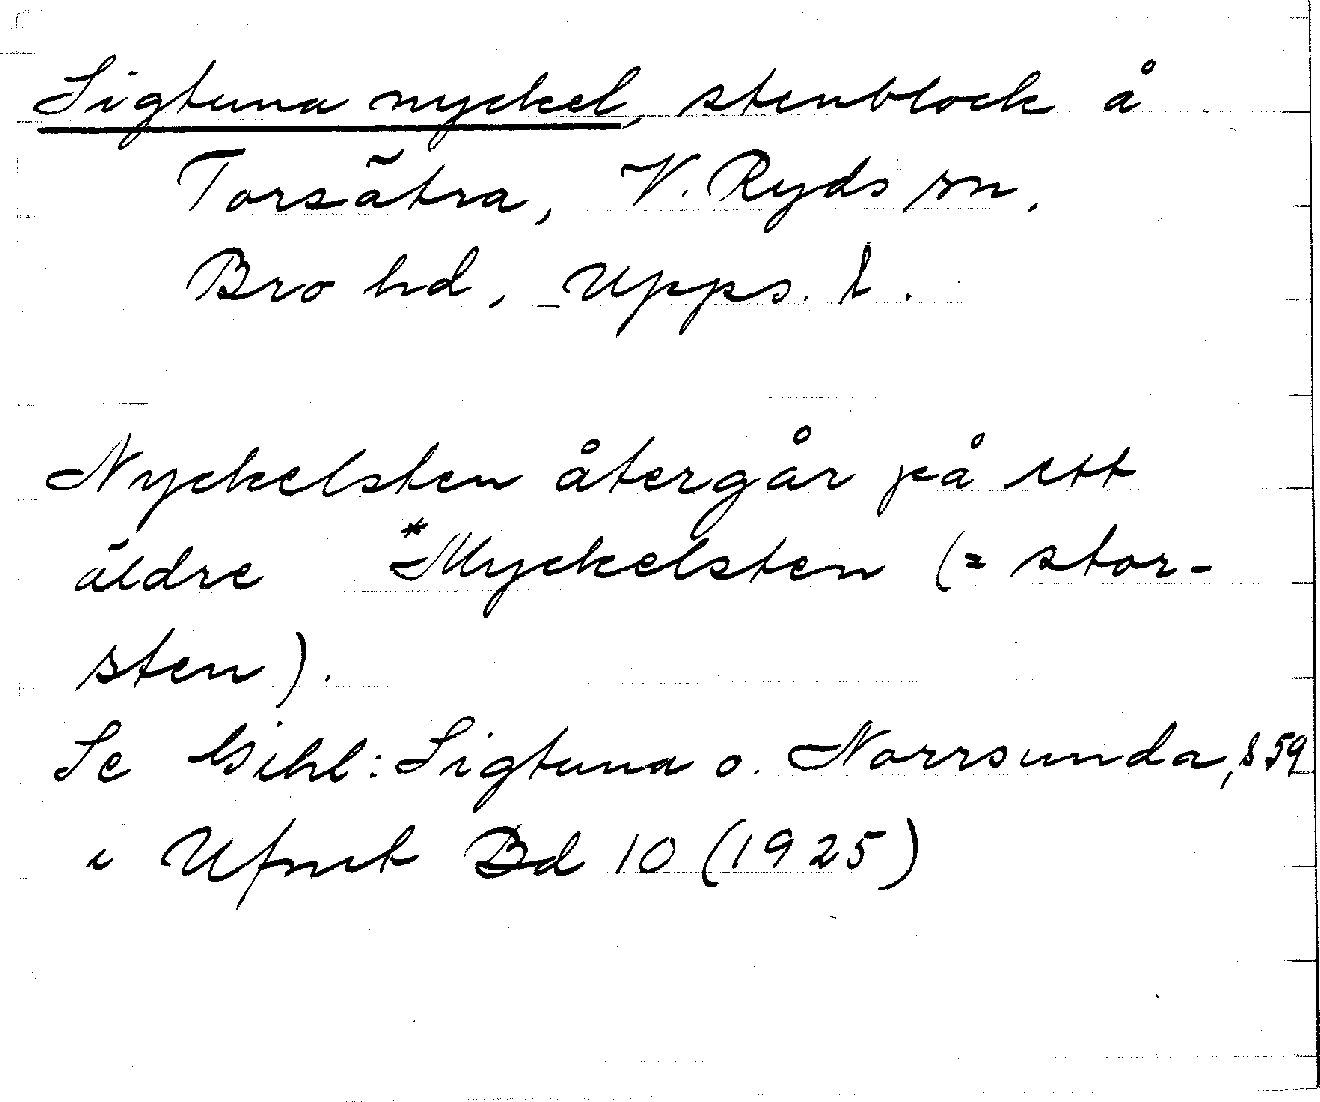 Sigtuna nyckel, stenblock å
Torsätra, V. Ryds sn,
Bro hd, Upps. l.
Nyckelsten återgår på ett
äldre *Myckelsten (= stor-
sten).
Se Gihl: Sigtuna o. Norrsunda, s 59
i Ufmt Bd 10 (1925)